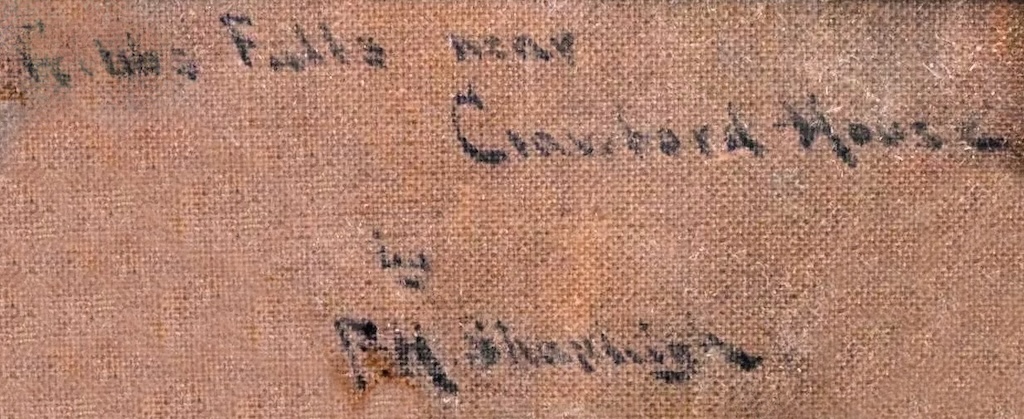 Gibbs Falls near
Crawford House
by
F H Shapleigh